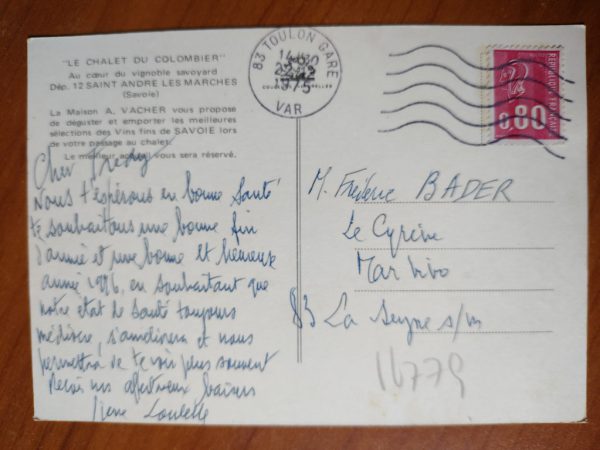 "LE CHALET DU COLOMBIER"
Au cœur du vignoble savoyard
Dép. 12 SAINT ANDRE LES MARCHES
(Savoie)
La Maison A. VACHER vous propose
de déguster et emporter les meilleures
sélections des Vins fins de SAVOIE lors
de votre passage au chalet.
Le meilleur accueil vous sera réservé.
Cher Fredy
Nous t'espérons en bonne santé
te souhaitons une bonne fin
d'année et une bonne et heureuse
année 1976, en souhaitant que
notre état de santé toujours
médiocre, s'améliorera et nous
permettra de te voir plus souvent
Reçois nos affectueux baisers
Loulette
83 TOULON GARE
1975
VAR
REPUBLIQUE FRANCAISE
0,80
M. Fréderic BADER
Le Cyrène
Mar Vivo
83 La Seyne s/m
16779